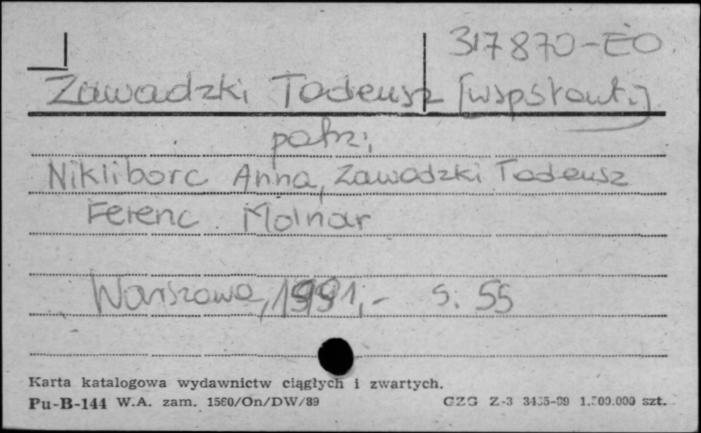 317870-EO
Zawadzki Tadeusz [wspołaut.]
patrz:
Nikliborc Anna, Zawadzki Tadeusz
Ferenc Molnar
Warszawa, 1991,- s. 55
Karta katalogowa wydawnictw ciągłych i zwartych.
Pu-B-144 W.A. zam. 1560/On/DW/89 CZG Z-3 3435-89 1.500.000 szt.